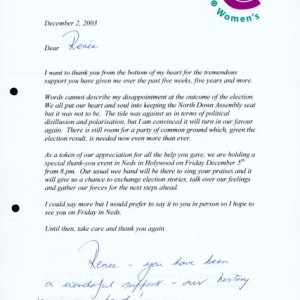 Women's
December 2, 2003
Dear Renée
I want to thank you from the bottom of my heart for the tremendous
support you have given me over the past five weeks, five years and more.
Words cannot describe my disappointment at the outcome of the election.
We all put our heart and soul into keeping the North Down Assembly seat
but it was not to be. The tide was against us in terms of political
disillusion and polarisation, but I am convinced it will turn in our favour
again. There is still room for a party of common ground which, given the
election result, is needed now even more than ever.
As a token of our appreciation for all the help you gave, we are holding a
special thank-you event in Neds in Holywood on Friday December 5th
from 8.pm. Our usual wee band will be there to sing your praises and it will
give us a chance to exchange election stories, talk over our feelings
and gather our forces for the next steps ahead.
I could say more but I would prefer to say it to you in person so I hope to
see you on Friday in Neds.
Until then, take care and thank you again
Renee - you have been
a wonderful support - our history